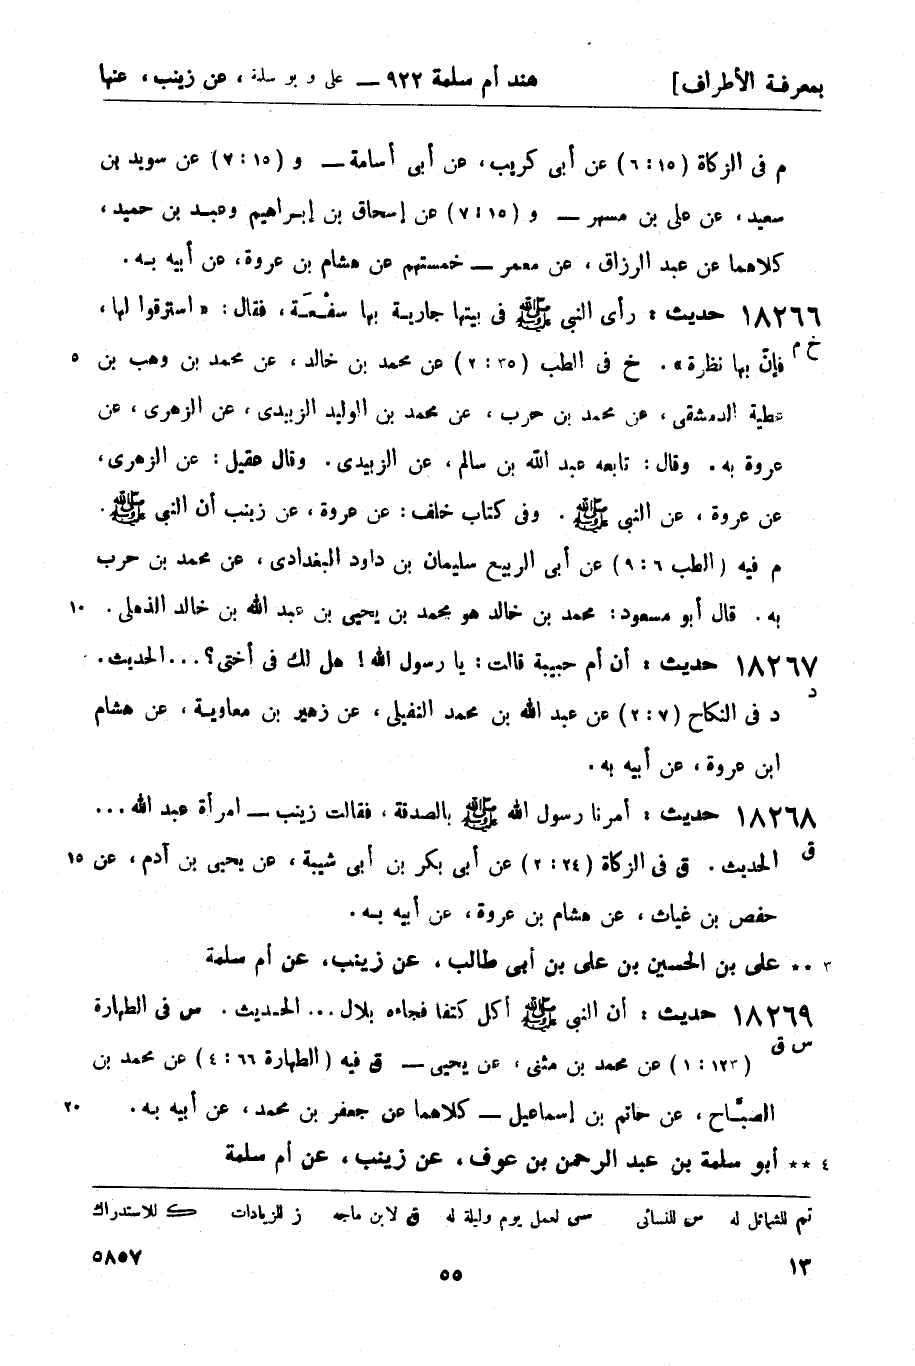 بمعرفة الأطراف] هند أم سلمة ٩٢٢ — على و بو سلمة، عن زينب، عنها
م فى الزكاة (١٥ : ٦) عن أبى كريب، عن أبى أسامة — و (١٥ : ٧) عن سويد بن
سعيد، عن على بن مسهر — و (١٥ : ٧) عن إسحاق بن إبراهيم وعبد بن حميد،
كلاهما عن عبد الرزاق، عن معمر — خمستهم عن هشام بن عروة، عن أبيه به.
١٨٢٦٦ حديث : رأى النبى ﷺ فى بيتها جارية بها سفْعَة، فقال : «استرقوا لها،
خ م
فإنّ بها نظرة». خ فى الطب (٣٥ : ٢) عن محمد بن خالد، عن محمد بن وهب بن ٥
عطية الدمشقى، عن محمد بن حرب، عن محمد بن الوليد الزبيدى، عن الزهرى، عن
عروة به. وقال : تابعه عبد الله بن سالم، عن الزبيدى. وقال عقيل : عن الزهرى،
عن عروة، عن النبى ﷺ. وفى كتاب خلف : عن عروة، عن زينب أن النبى ﷺ.
م فيه (الطب ٦ : ٩) عن أبى الربيع سليمان بن داود البغدادى، عن محمد بن حرب
به. قال أبو مسعود : محمد بن خالد هو محمد بن يحيى بن عبد الله بن خالد الذهلى. ١٠
١٨٢٦٧ حديث : أن أم حبيبة قالت : يا رسول الله ! هل لك فى أختى؟...الحديث.
د
د فى النكاح (٧ : ٢) عن عبد الله بن محمد النفيلى، عن زهير بن معاوية، عن هشام
ابن عروة، عن أبيه به.
١٨٢٦٨ حديث : أمرنا رسول الله ﷺ بالصدقة، فقالت زينب — امرأة عبد الله ...
ق
الحديث. ق فى الزكاة (٢٤ : ٢) عن أبى بكر بن أبى شيبة، عن يحيى بن آدم، عن ١٥
حفص بن غياث، عن هشام بن عروة، عن أبيه به.
٣ ** على بن الحسين بن على بن أبى طالب، عن زينب، عن أم سلمة
١٨٢٦٩ حديث : أن النبى ﷺ أكل كتفا فجاءه بلال ... الحديث. س فى الطهارة
س ق
(١٢٣ : ١) عن محمد بن مثنى، عن يحيى — ق فيه (الطهارة ٦٦ : ٤) عن محمد بن
الصبَّاح، عن حاتم بن إسماعيل — كلاهما عن جعفر بن محمد، عن أبيه به. ٢٠
٤ ** أبو سلمة بن عبد الرحمن بن عوف، عن زينب، عن أم سلمة
تم للشمائل له س للنسائى سى لعمل يوم وليلة له ق لابن ماجه ز للزيادات ك للاستدراك
١٣ ٥٥ ٥٨٥٧